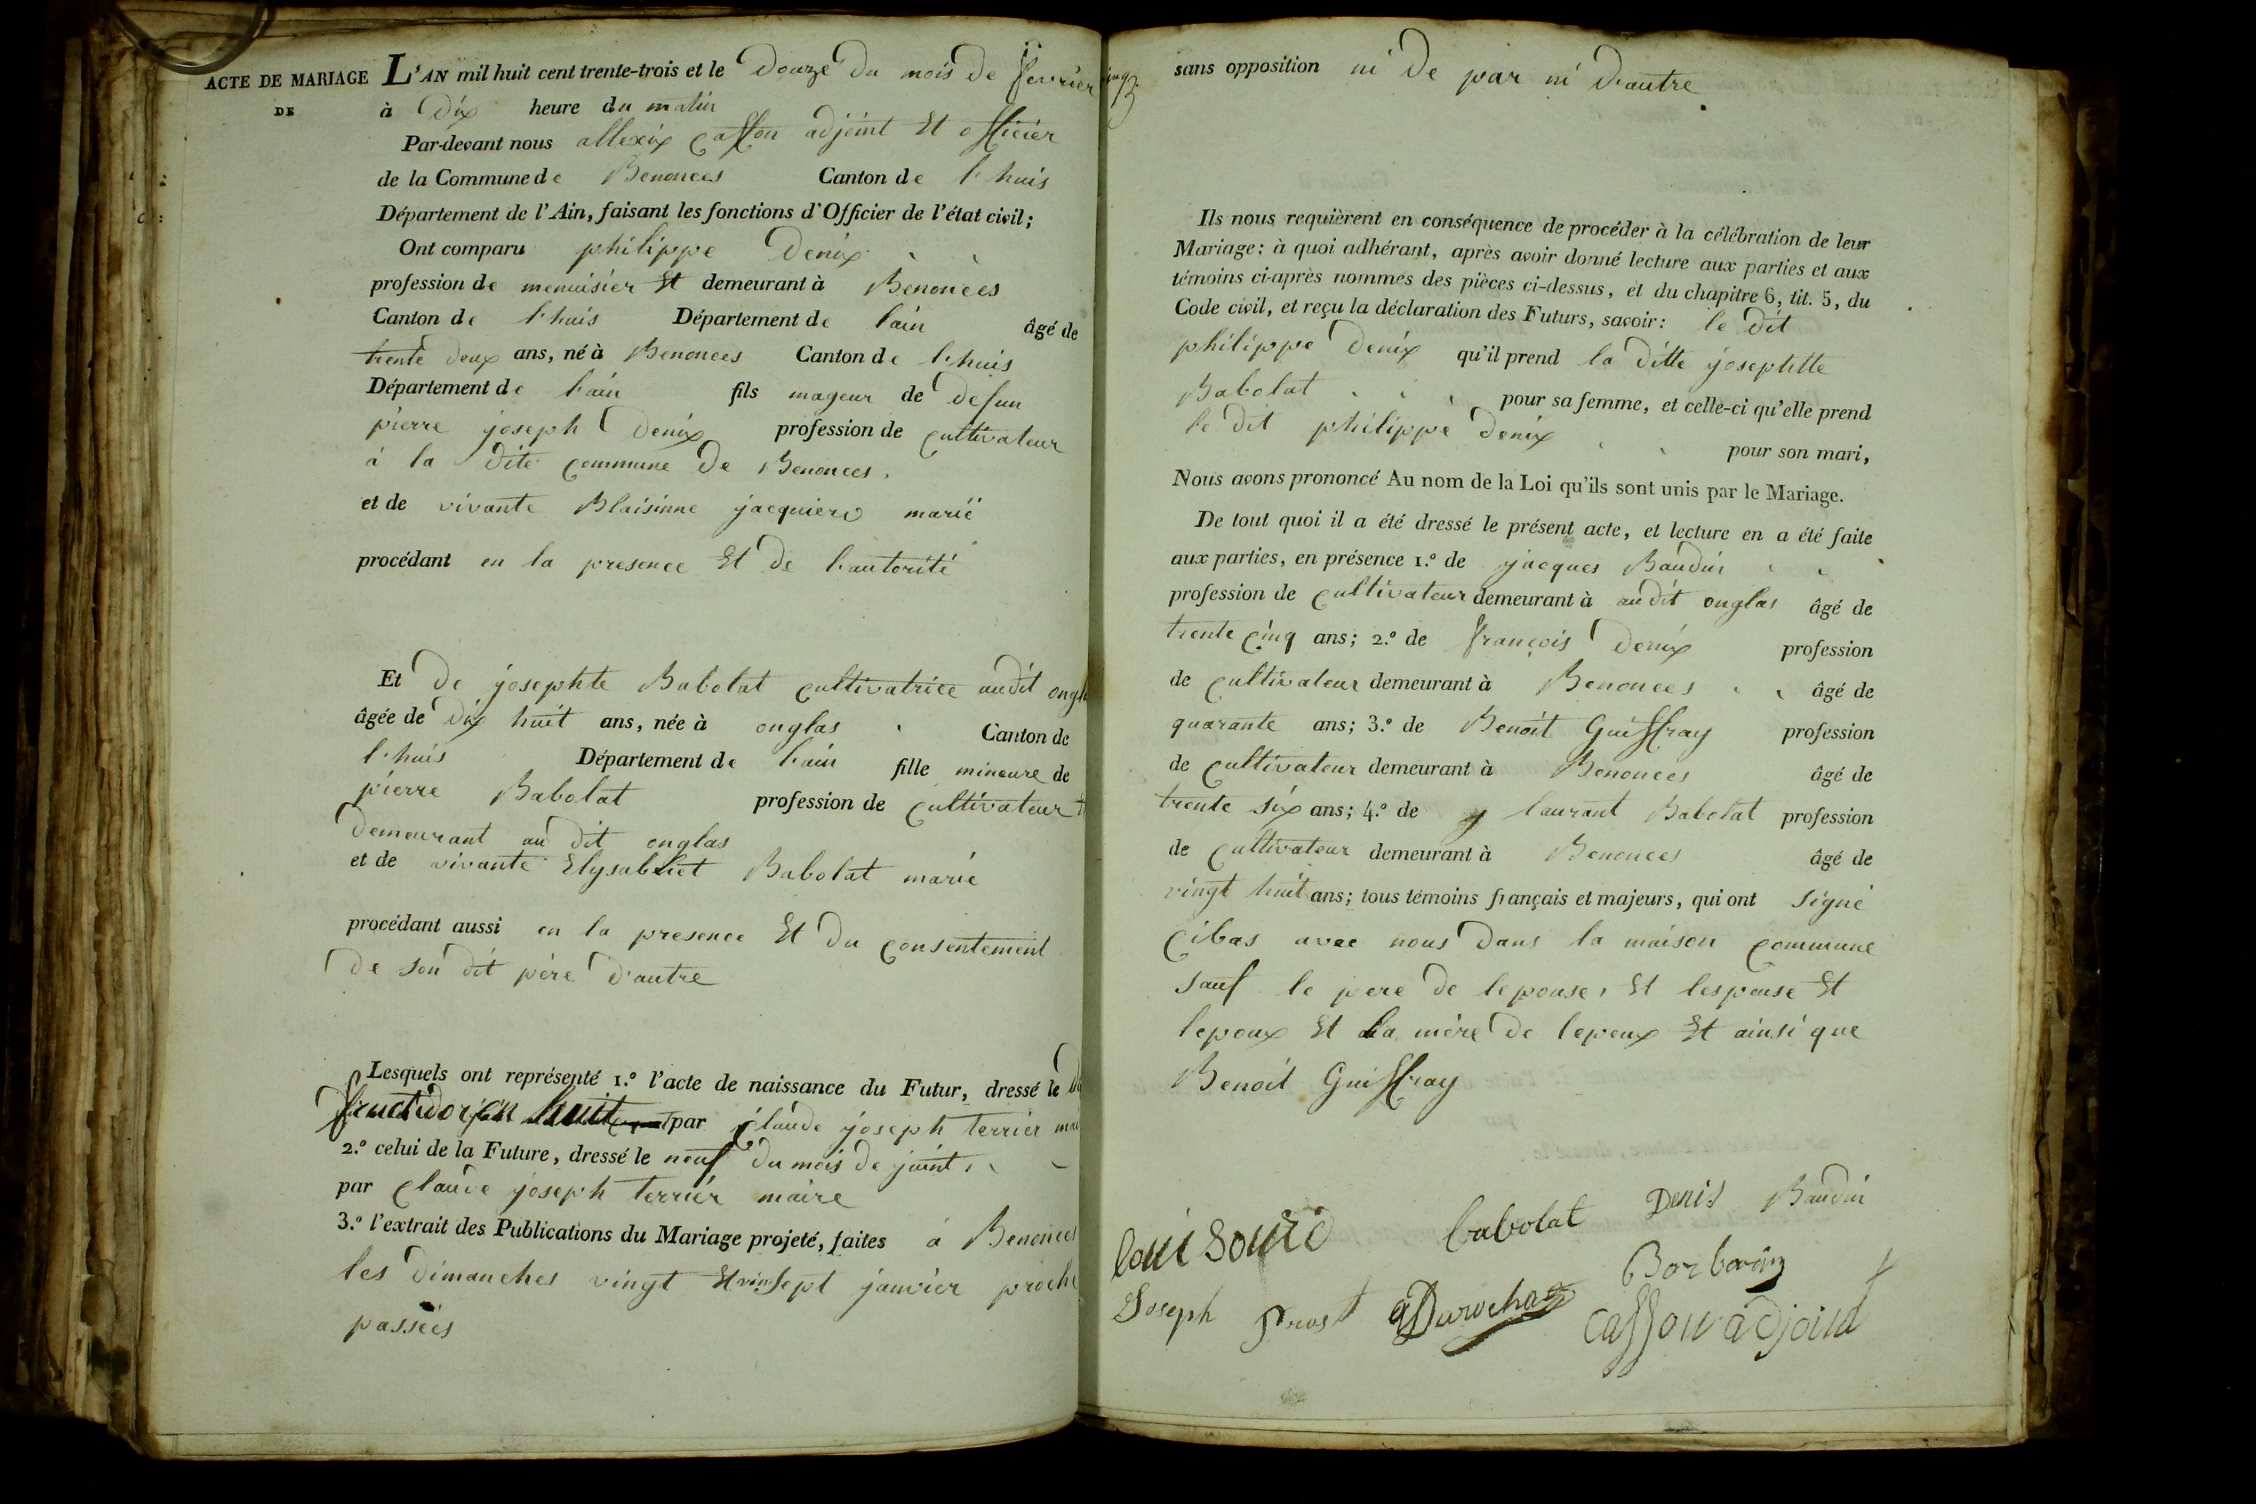 ACTE DE MARIAGE
DE
L'AN mil huit cent trente-trois et le Douze Du mois De fevrier
à Dix heure du matin
Par-devant nous allexix Casson adjoint Et officier
de la Commune de Benonces Canton de l'huis
Département de l'Ain, faisant les fonctions d'Officier de l'état civil;
Ont comparu philippe Denix
profession de menuisier Et demeurant à Bénonces
Canton de l'huis Département de l'ain âgé de
trente deux ans, né à Benonces Canton de l'huis
Département de l'ain fils mageur de Defun
pierre joseph Denix profession de cultivateur
à la Dite commune De Benonces.
et de vivante Blaisinne jacquiero marié
procédant en la presence Et De l'autorité
Et De josephte Babolat cultivatrice audit
âgée de Dix huit ans, née à onglas Canton de
l'huis Département de l'ain fille mineure de
pierre Babolat profession de cultivateur
Demeurant au Dit onglas
et de vivante Elysabhet Babolat marié
procédant aussi en la presence Et Du consentement
De son Dit père D'autre
Lesquels ont représenté 1.º l'acte de naissance du Futur, dressé le
fructidor an huit par claude joseph terrier
2.º celui de la Future, dressé le neuf Du mois De juint
par claude joseph terrier maire
3.º l'extrait des Publications du Mariage projeté, faites à Benonces
les Dimanches vingt Et vinsept janvier proche
passées
sans opposition ni De par ni D'autre
Ils nous requièrent en conséquence de procéder à la célébration de leur
Mariage: à quoi adhérant, après avoir donné lecture aux parties et aux
témoins ci-après nommés des pièces ci-dessus, et du chapitre 6, tit. 5, du
Code civil, et reçu la déclaration des Futurs, savoir: le Dit
philippe Denix qu'il prend la Ditte josephtte
Babolat pour sa femme, et celle-ci qu'elle prend
le Dit philippe Denix pour son mari,
Nous avons prononcé Au nom de la Loi qu'ils sont unis par le Mariage.
De tout quoi il a été dressé le présent acte, et lecture en a été faite
aux parties, en présence 1.º de jacques Baudin
profession de cultivateur demeurant à audit onglas âgé de
trente cinq ans; 2.º de françois Denix profession
de cultivateur demeurant à Benonces âgé de
quarante ans; 3.º de Benoit Guiffray profession
de cultivateur demeurant à Benonces âgé de
trente six ans; 4.º de laurant Babolat profession
de cultivateur demeurant à Benonces âgé de
vingt huit ans; tous témoins français et majeurs, qui ont signé
cibas avec nous Dans la maison commune
sauf le pere De lepouse, Et lespouse Et
lepoux Et la mère De lepoux Et ainsi que
Benoit Guiffray
babolat Denis Baudin
Joseph prost
Casson adjoint